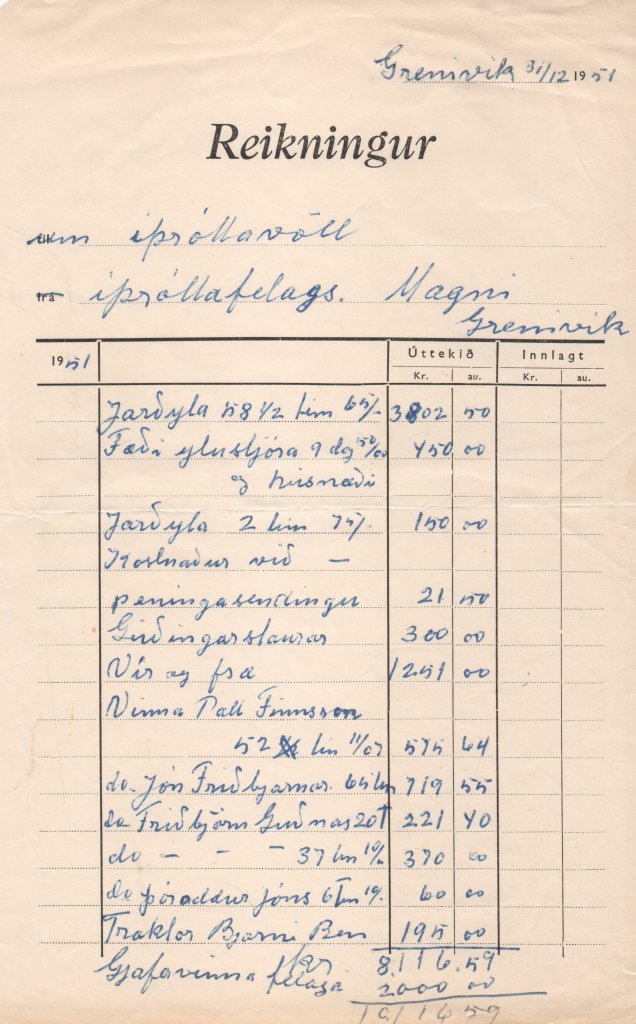 Grenivik 31/12 1951
Reikningur
um íþróttavöll
frá íþróttafelags. Magni
Grenivik
1951 Úttekið Innlagt
Kr. au. Kr. au.
Jarðyta 58 1/2 tim 65/- 3802 50
Fæði ytustjóra 9 dg 50/00 450 00
og húsnæði
Jarðyta 2 tim 75/- 150 00
Kostnaður við —
peningasendingu 21 50
Girðingarstaurar 300 00
Vír og fræ 1251 00
Vinna Páll Finnsson
52 tim 11/07 575 64
do. Jón Friðbjarnar. 65 tm 719 55
do Friðbjörn Guðnas 20 T 221 40
do — — — 37 tm 10/- 370 00
do þóroddur Jóns 6 Tm 10/- 60 00
Traktor Bjarni Ben 195 00
kr 8116.59
Gjafavinna félaga 2000 00
10,116 59